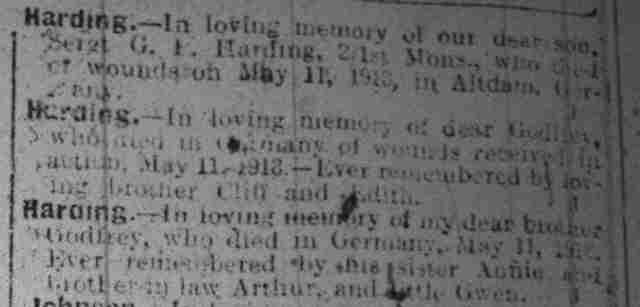 Harding.—In loving memory of our dear son,
Sergt G. F. Harding, 2/1st Mons., who died
of wounds on May 11, 1918, in Altdam, Ger-
many.
Harding.—In loving memory of dear Godfrey,
who died in Germany of wounds received in
action, May 11, 1918.—Ever remembered by lov-
ing brother Cliff and Edith.
Harding.—In loving memory of my dear brother
Godfrey, who died in Germany, May 11, 1918.
Ever remembered by his sister Annie and
brother-in law Arthur, and little Gwen.